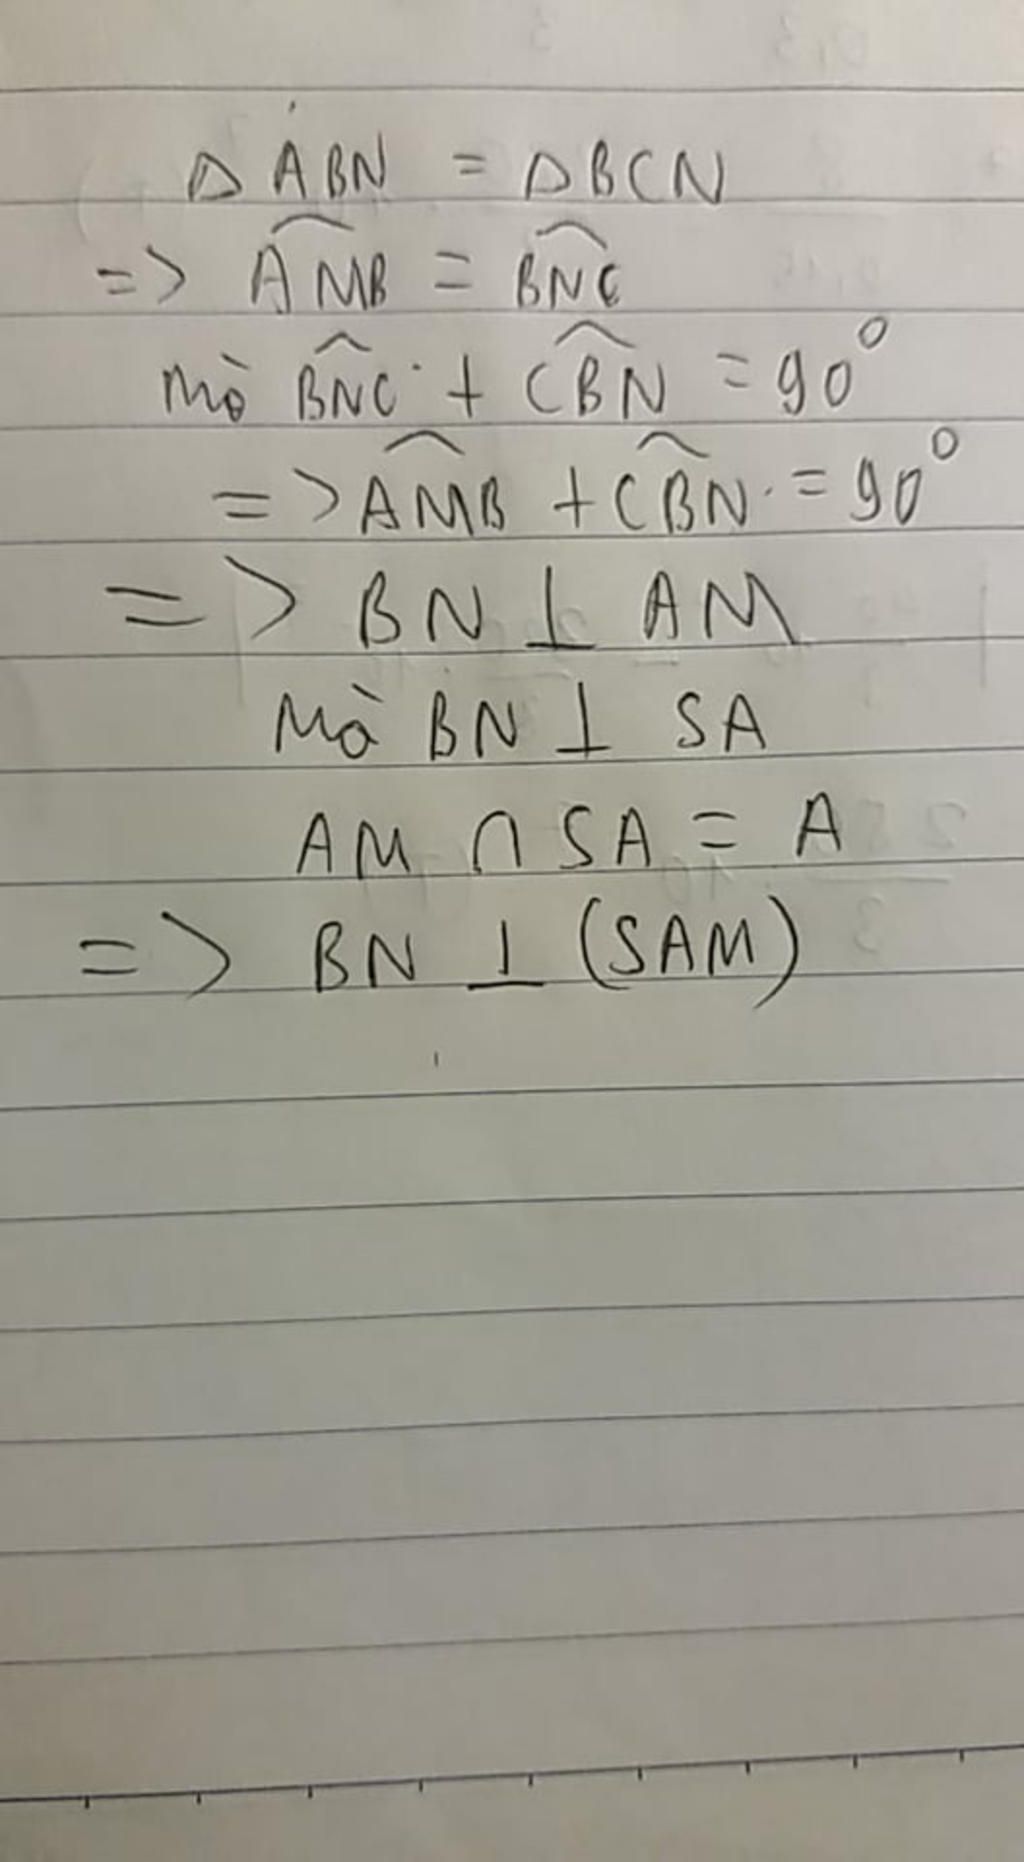 Δ ABN = ΔBCN
=> \widehat{AMB} = \widehat{BNC}
mà \widehat{BNC} + \widehat{CBN} = 90°
=> \widehat{AMB} + \widehat{CBN} = 90°
=> BN ⊥ AM
Mà BN ⊥ SA
AM ∩ SA = A
=> BN ⊥ (SAM)